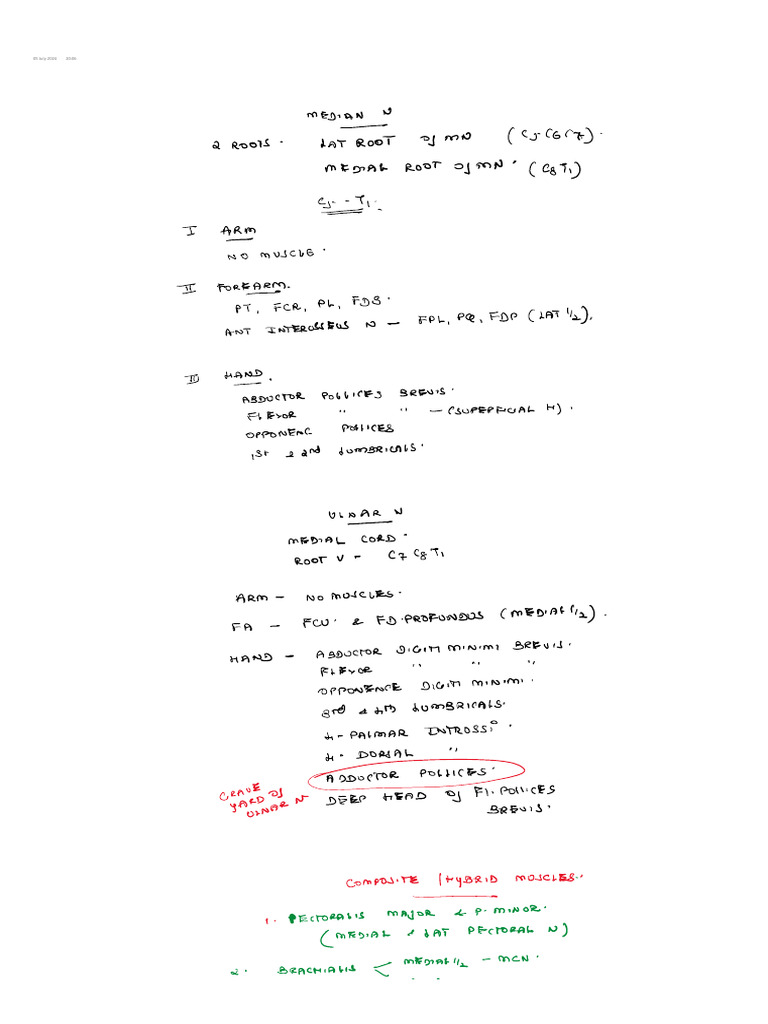 MEDIAN N
2 ROOTS. LAT ROOT Of MN (C5 C6 C7).
MEDIAL ROOT Of MN. (C8 T1)
C5 - - T1.
I ARM
NO MUSCLE.
II FOREARM.
PT, FCR, PL, FDS.
ANT INTEROSSEUS N — FPL, PQ, FDP (LAT 1/2).
III HAND.
ABDUCTOR POLLICES BREVIS.
FLEXOR " " — (SUPERFICIAL H).
OPPONENC POLLICES
1st & 2nd LUMBRICALS.
ULNAR N
MEDIAL CORD.
ROOT V — C7 C8 T1
ARM — NO MUSCLES.
FA — FCU & FD.PROFUNDUS (MEDIAL 1/2).
HAND — ABDUCTOR DIGITI MINIMI BREVIS.
FLEXOR " " "
OPPONENCE DIGITI MINIMI.
3rd & 4th LUMBRICALS.
4 - PALMAR INTROSSI.
4. DORSAL "
ADDUCTOR POLLICES.
GRAVE YARD Of ULNAR N
DEEP HEAD Of Fl. POLLICES
BREVIS.
COMPOSITE / HYBRID MUSCLES.
1. PECTORALIS MAJOR & P. MINOR.
(MEDIAL & LAT PECTORAL N)
2. BRACHIALIS < MEDIAL 1/2 — MCN.